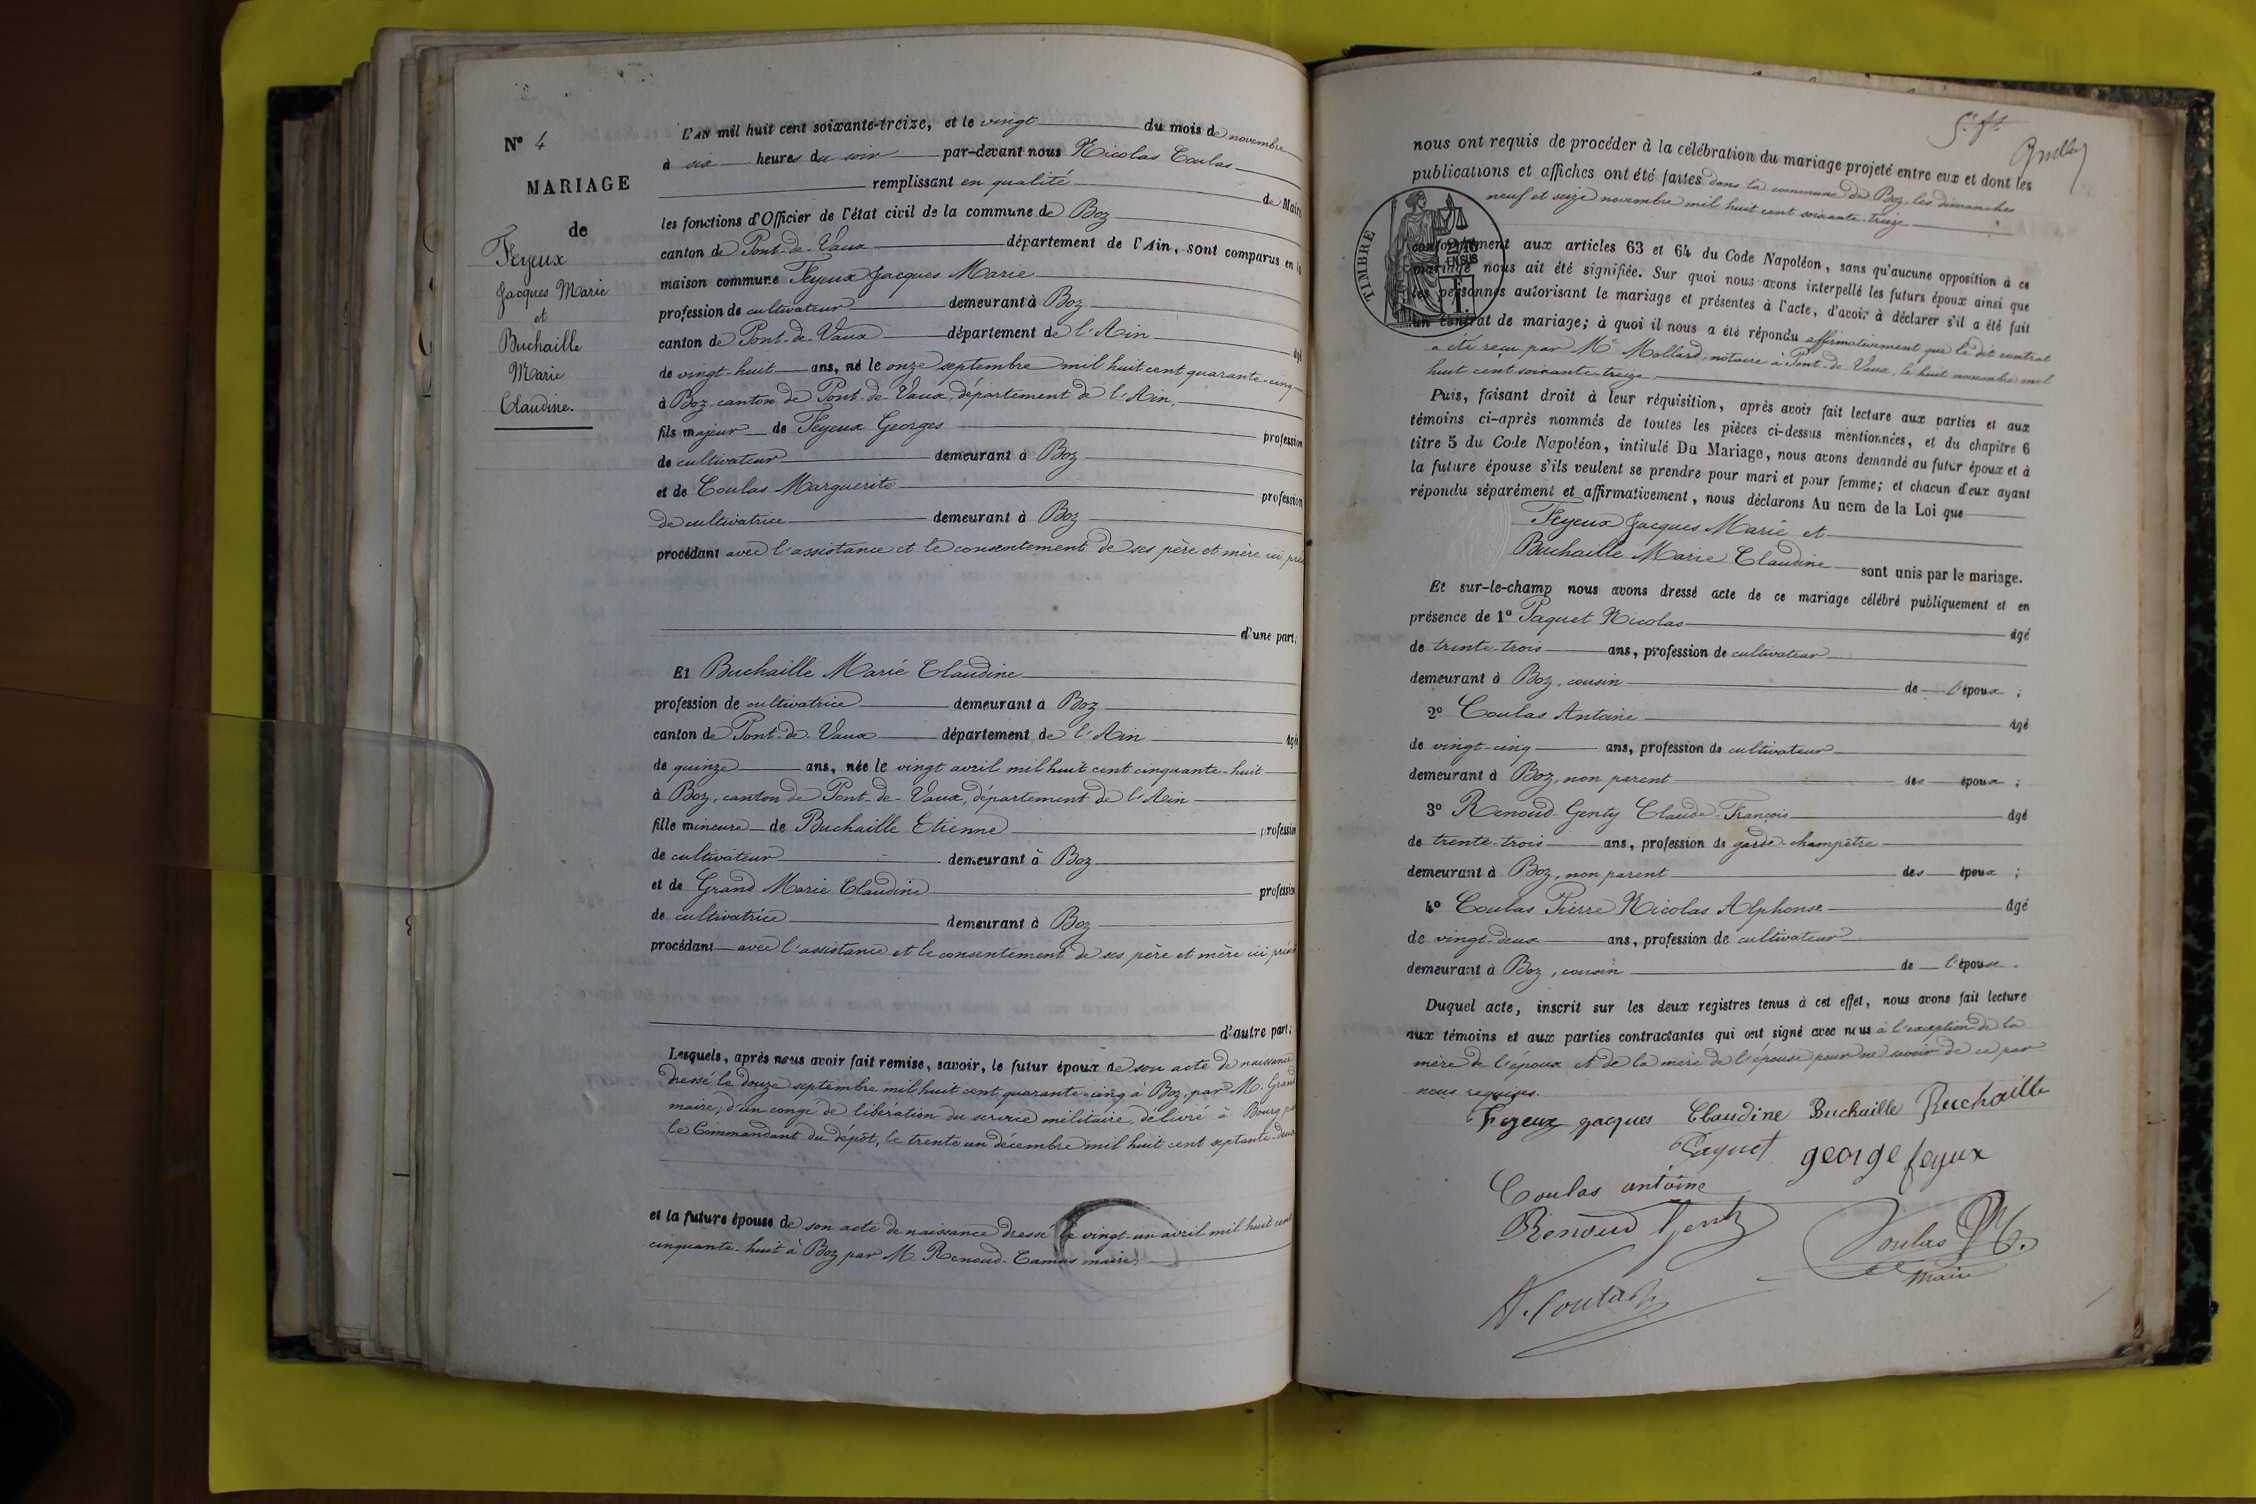 N° 4
MARIAGE
de
Feyeux
Jacques Marie
et
Buchaille
Marie
Claudine.
L'AN mil huit cent soixante-treize, et le vingt du mois de novembre
à six heures du soir par-devant nous Nicolas Coulas
remplissant en qualité de Maire
les fonctions d'Officier de l'état civil de la commune de Boz
canton de Pont-de-Vaux département de l'Ain, sont comparus en la
maison commune Feyeux Jacques Marie
profession de cultivateur demeurant à Boz
canton de Pont-de-Vaux département de l'Ain âgé
de vingt-huit ans, né le onze septembre mil huit cent quarante-cinq
à Boz, canton de Pont-de-Vaux, département de l'Ain,
fils majeur de Feyeux Georges profession
de cultivateur demeurant à Boz
et de Coulas Marguerite profession
de cultivatrice demeurant à Boz
procédant avec l'assistance et le consentement de ses père et mère ici
d'une part;
Et Buchaille Marie Claudine
profession de cultivatrice demeurant à Boz
canton de Pont-de-Vaux département de l'Ain âgée
de quinze ans, née le vingt avril mil huit cent cinquante-huit
à Boz, canton de Pont-de-Vaux, département de l'Ain
fille mineure de Buchaille Etienne profession
de cultivateur demeurant à Boz
et de Grand Marie Claudine profession
de cultivatrice demeurant à Boz
procédant avec l'assistance et le consentement de ses père et mère ici
d'autre part;
Lesquels, après nous avoir fait remise, savoir, le futur époux de son acte de naissance
dressé le douze septembre mil huit cent quarante-cinq à Boz, par M. Grand
maire; d'un congé de libération du service militaire, délivré à Bourg, par
le Commandant du dépôt, le trente un décembre mil huit cent septante-deux
et la future épouse de son acte de naissance dressé le vingt-un avril mil huit cent
cinquante-huit à Boz par M. Renoud-Camus maire
nous ont requis de procéder à la célébration du mariage projeté entre eux et dont les
publications et affiches ont été faites dans la commune de Boz, les dimanches
neuf et seize novembre mil huit cent soixante-treize
TIMBRE
conformément aux articles 63 et 64 du Code Napoléon, sans qu'aucune opposition à ce
mariage nous ait été signifiée. Sur quoi nous avons interpellé les futurs époux ainsi que
les personnes autorisant le mariage et présentes à l'acte, d'avoir à déclarer s'il a été fait
un contrat de mariage; à quoi il nous a été répondu affirmativement que le dit contrat
a été reçu par Me Mollard, notaire à Pont-de-Vaux, le huit novembre mil
huit cent soixante-treize
Puis, faisant droit à leur réquisition, après avoir fait lecture aux parties et aux
témoins ci-après nommés de toutes les pièces ci-dessus mentionnées, et du chapitre 6
titre 5 du Code Napoléon, intitulé Du Mariage, nous avons demandé au futur époux et à
la future épouse s'ils veulent se prendre pour mari et pour femme; et chacun d'eux ayant
répondu séparément et affirmativement, nous déclarons Au nom de la Loi que
Feyeux Jacques Marie et
Buchaille Marie Claudine sont unis par le mariage.
Et sur-le-champ nous avons dressé acte de ce mariage célébré publiquement et en
présence de 1° Paquet Nicolas âgé
de trente-trois ans, profession de cultivateur
demeurant à Boz, cousin de l'époux;
2° Coulas Antoine âgé
de vingt-cinq ans, profession de cultivateur
demeurant à Boz, non parent des époux;
3° Renoud-Genty Claude-François âgé
de trente-trois ans, profession de garde-champêtre
demeurant à Boz, non parent des époux;
4° Coulas Pierre Nicolas Alphonse âgé
de vingt-deux ans, profession de cultivateur
demeurant à Boz, cousin de l'épouse.
Duquel acte, inscrit sur les deux registres tenus à cet effet, nous avons fait lecture
aux témoins et aux parties contractantes qui ont signé avec nous à l'exception de la
mère de l'époux et de la mère de l'épouse pour ne savoir de ce par
nous requises.
Feyeux jacques Claudine Buchaille Buchaille
Paquet george feyux
Coulas antoine
Renoud Genty
Coulas
Maire
A. Coulas